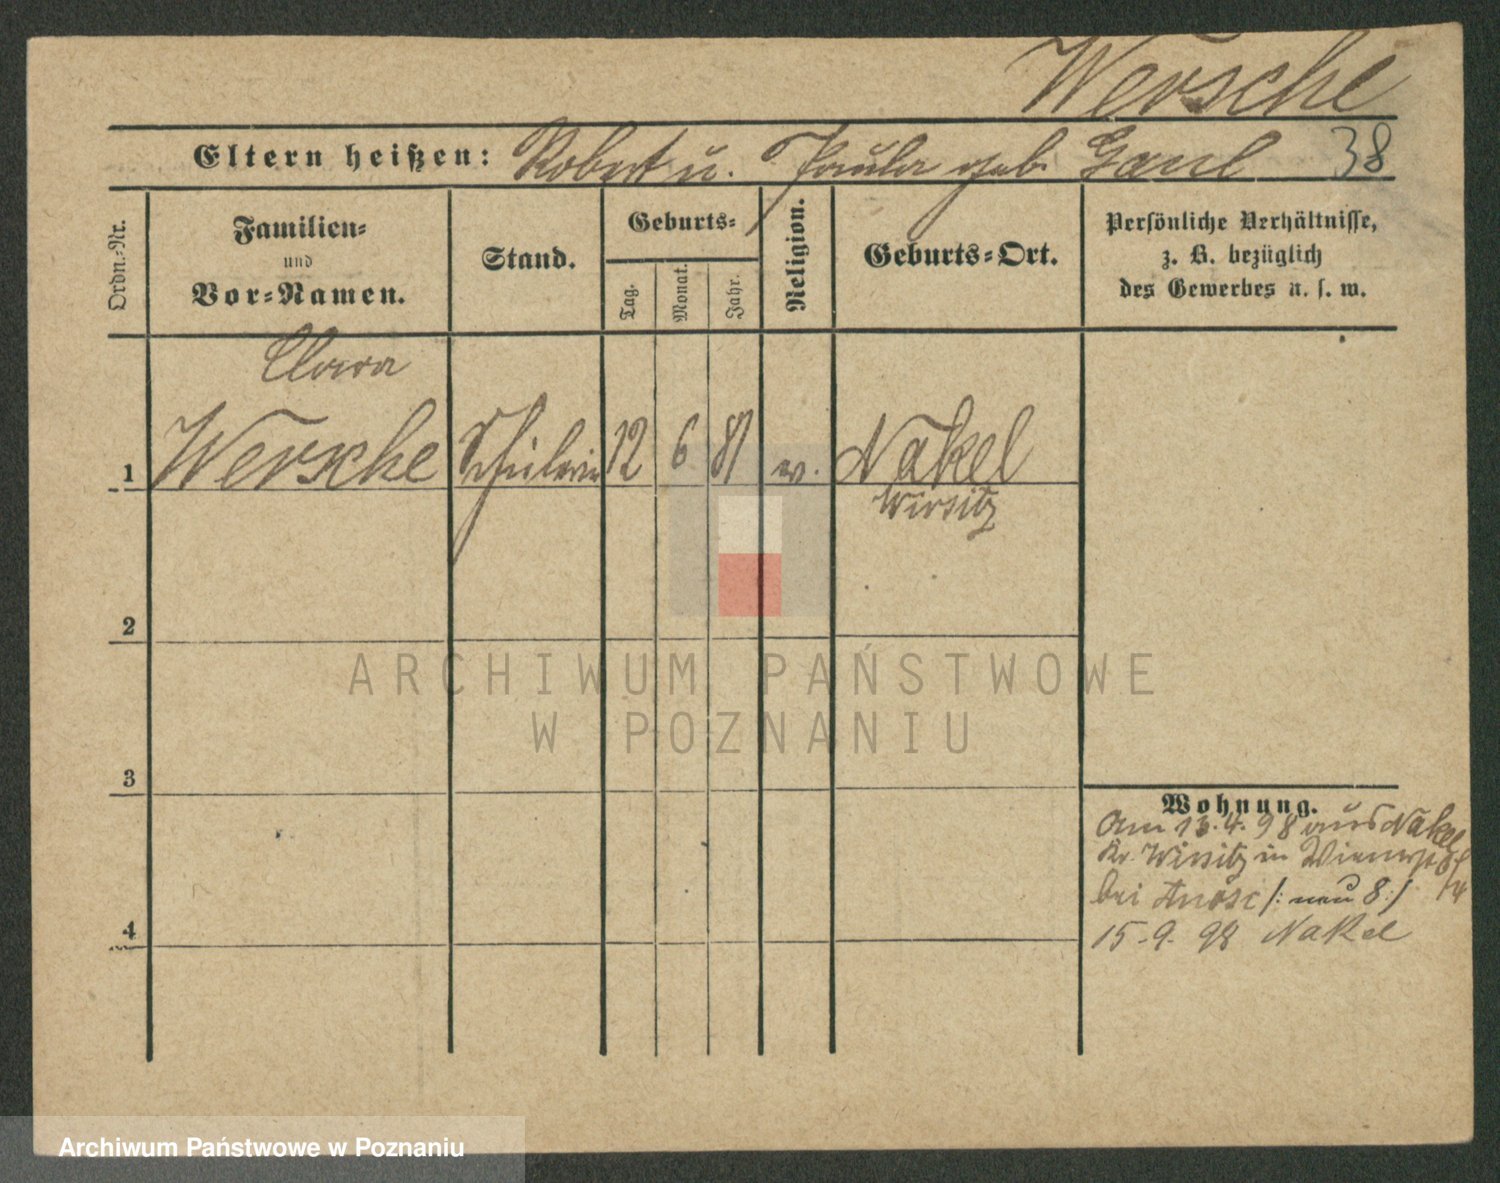 Wersche
Eltern heißen: Robert u. Paula geb. Gaul 38
Ordn.-Nr.
Familien-
und
Vor-Namen.
Stand.
Geburts-
Tag.
Monat.
Jahr.
Religion.
Geburts-Ort.
Persönliche Verhältnisse,
z. B. bezüglich
des Gewerbes u. s. w.
Clara
1 Wersche Schülerin 12 6 81 ev. Nakel
Wirsitz
2
3
4
Wohnung.
Am 13.4.98 aus Nakel
Kr. Wirsitz in
bei (: neu 8 :)
15.9.98 Nakel
ARCHIWUM PAŃSTWOWE
W POZNANIU
Archiwum Państwowe w Poznaniu